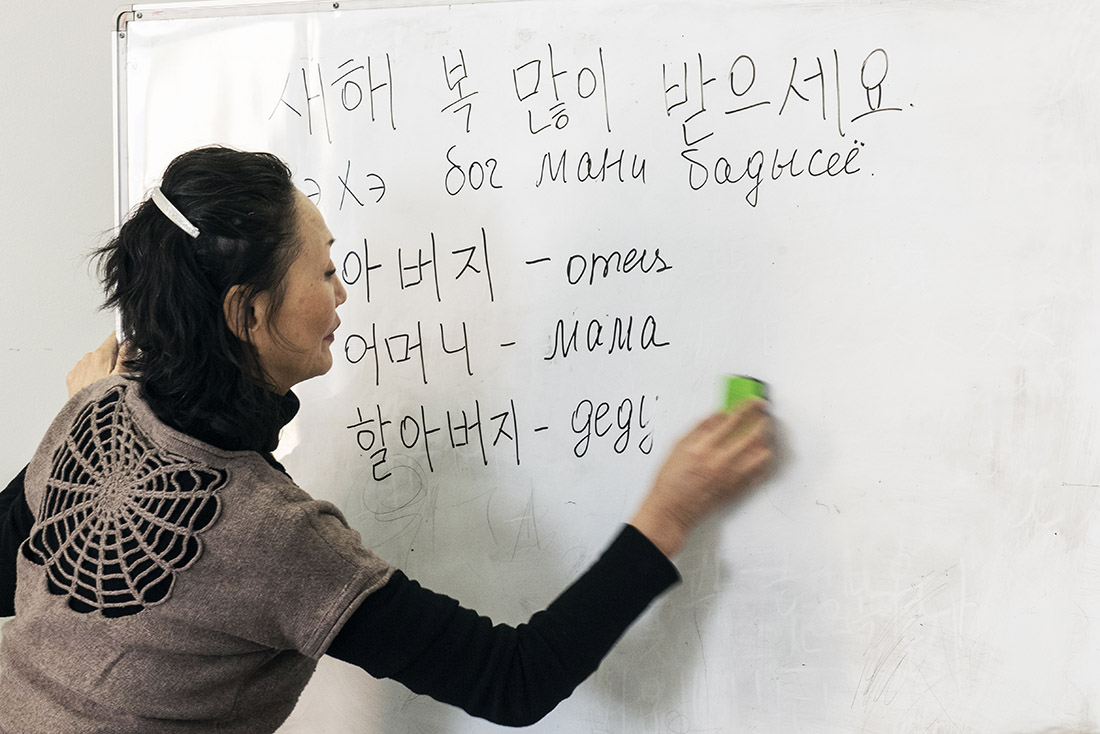 새해 복 많이 받으세요.
хэ бог мани бадысеё.
아버지 - отец
어머니 - мама
할아버지 - деду